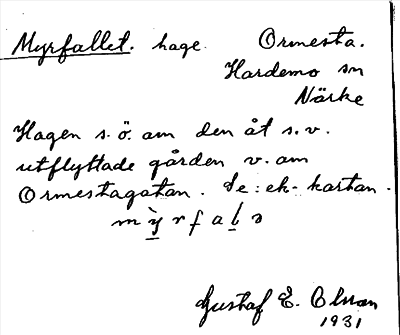 Myrfallet. hage. Ormesta.
Hardemo sn
Närke
Hagen s.ö. om den åt s.v.
utflyttade gården v. om
Ormestagatan. Se: ek- kartan.
m ỳ r f a l ə
Gustaf E. Olsson
1931